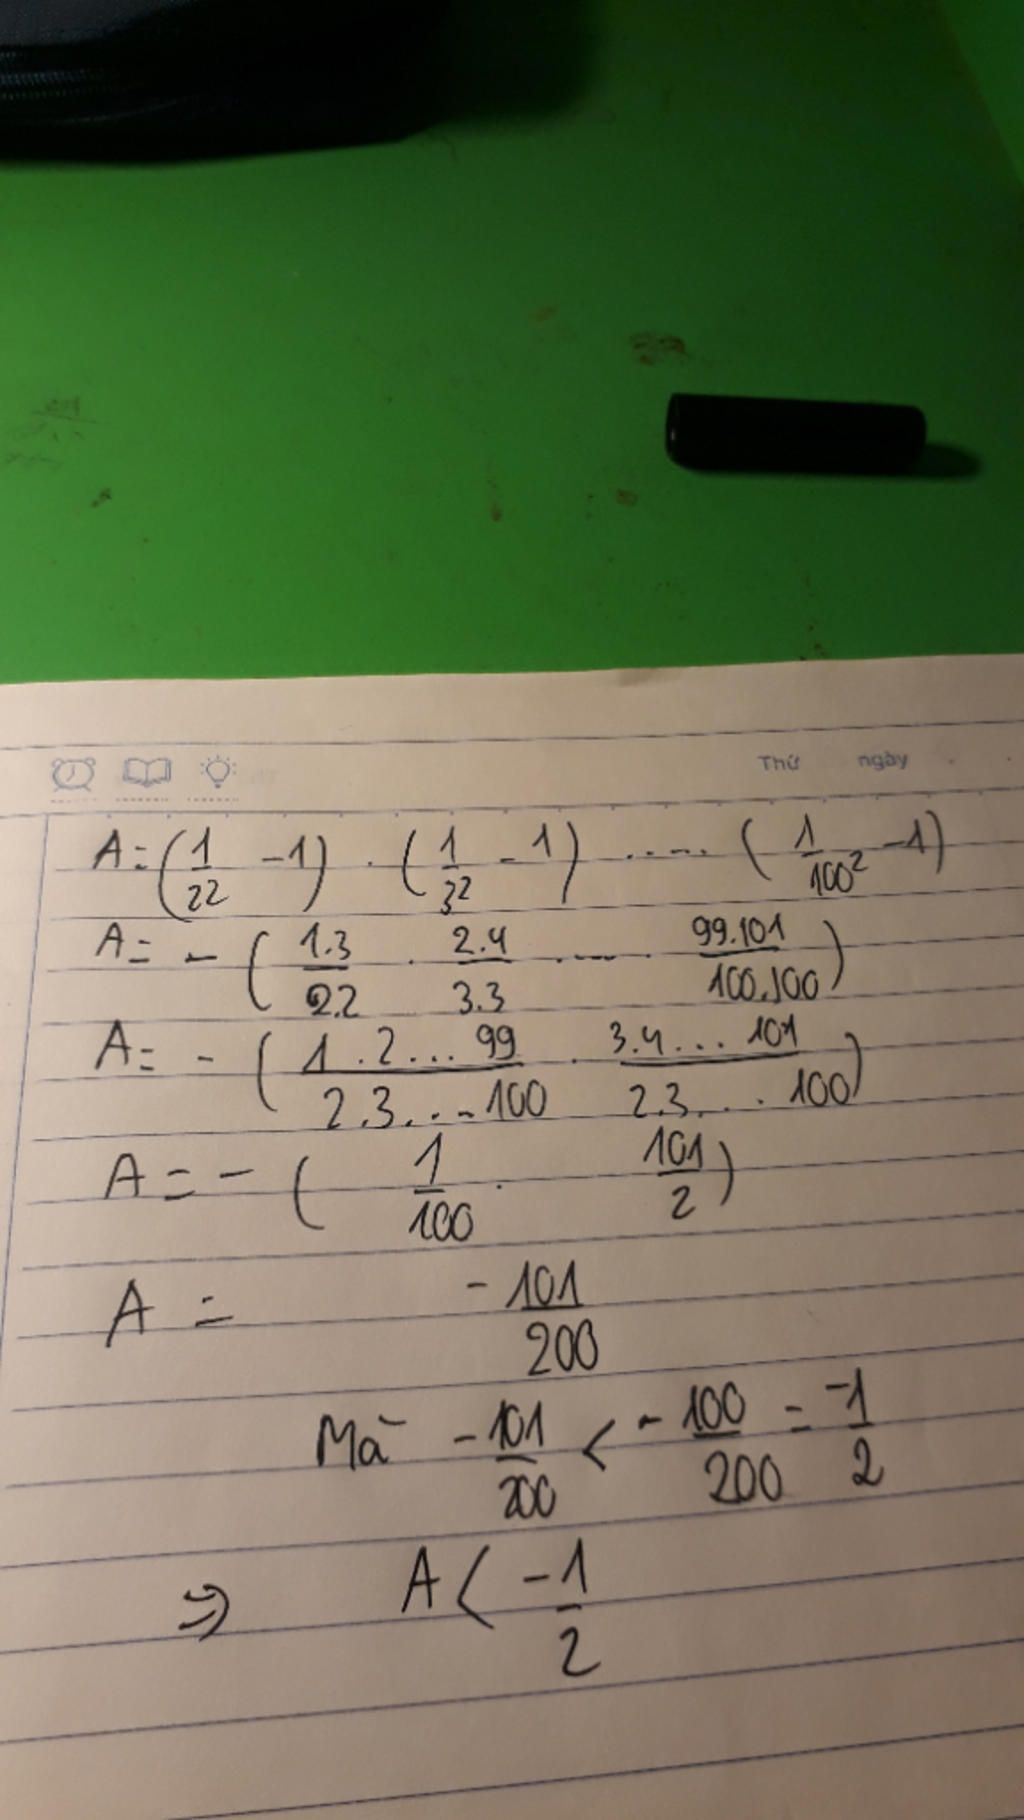 Thứ ngày
A = (1/2² - 1) . (1/3² - 1) ..... (1/100² - 1)
A = - (1.3/2.2 . 2.4/3.3 . .... . 99.101/100.100)
A = - (1.2...99/2.3....100 . 3.4...101/2.3....100)
A = - (1/100 . 101/2)
A = -101/200
Mà -101/200 < -100/200 = -1/2
⇒ A < -1/2